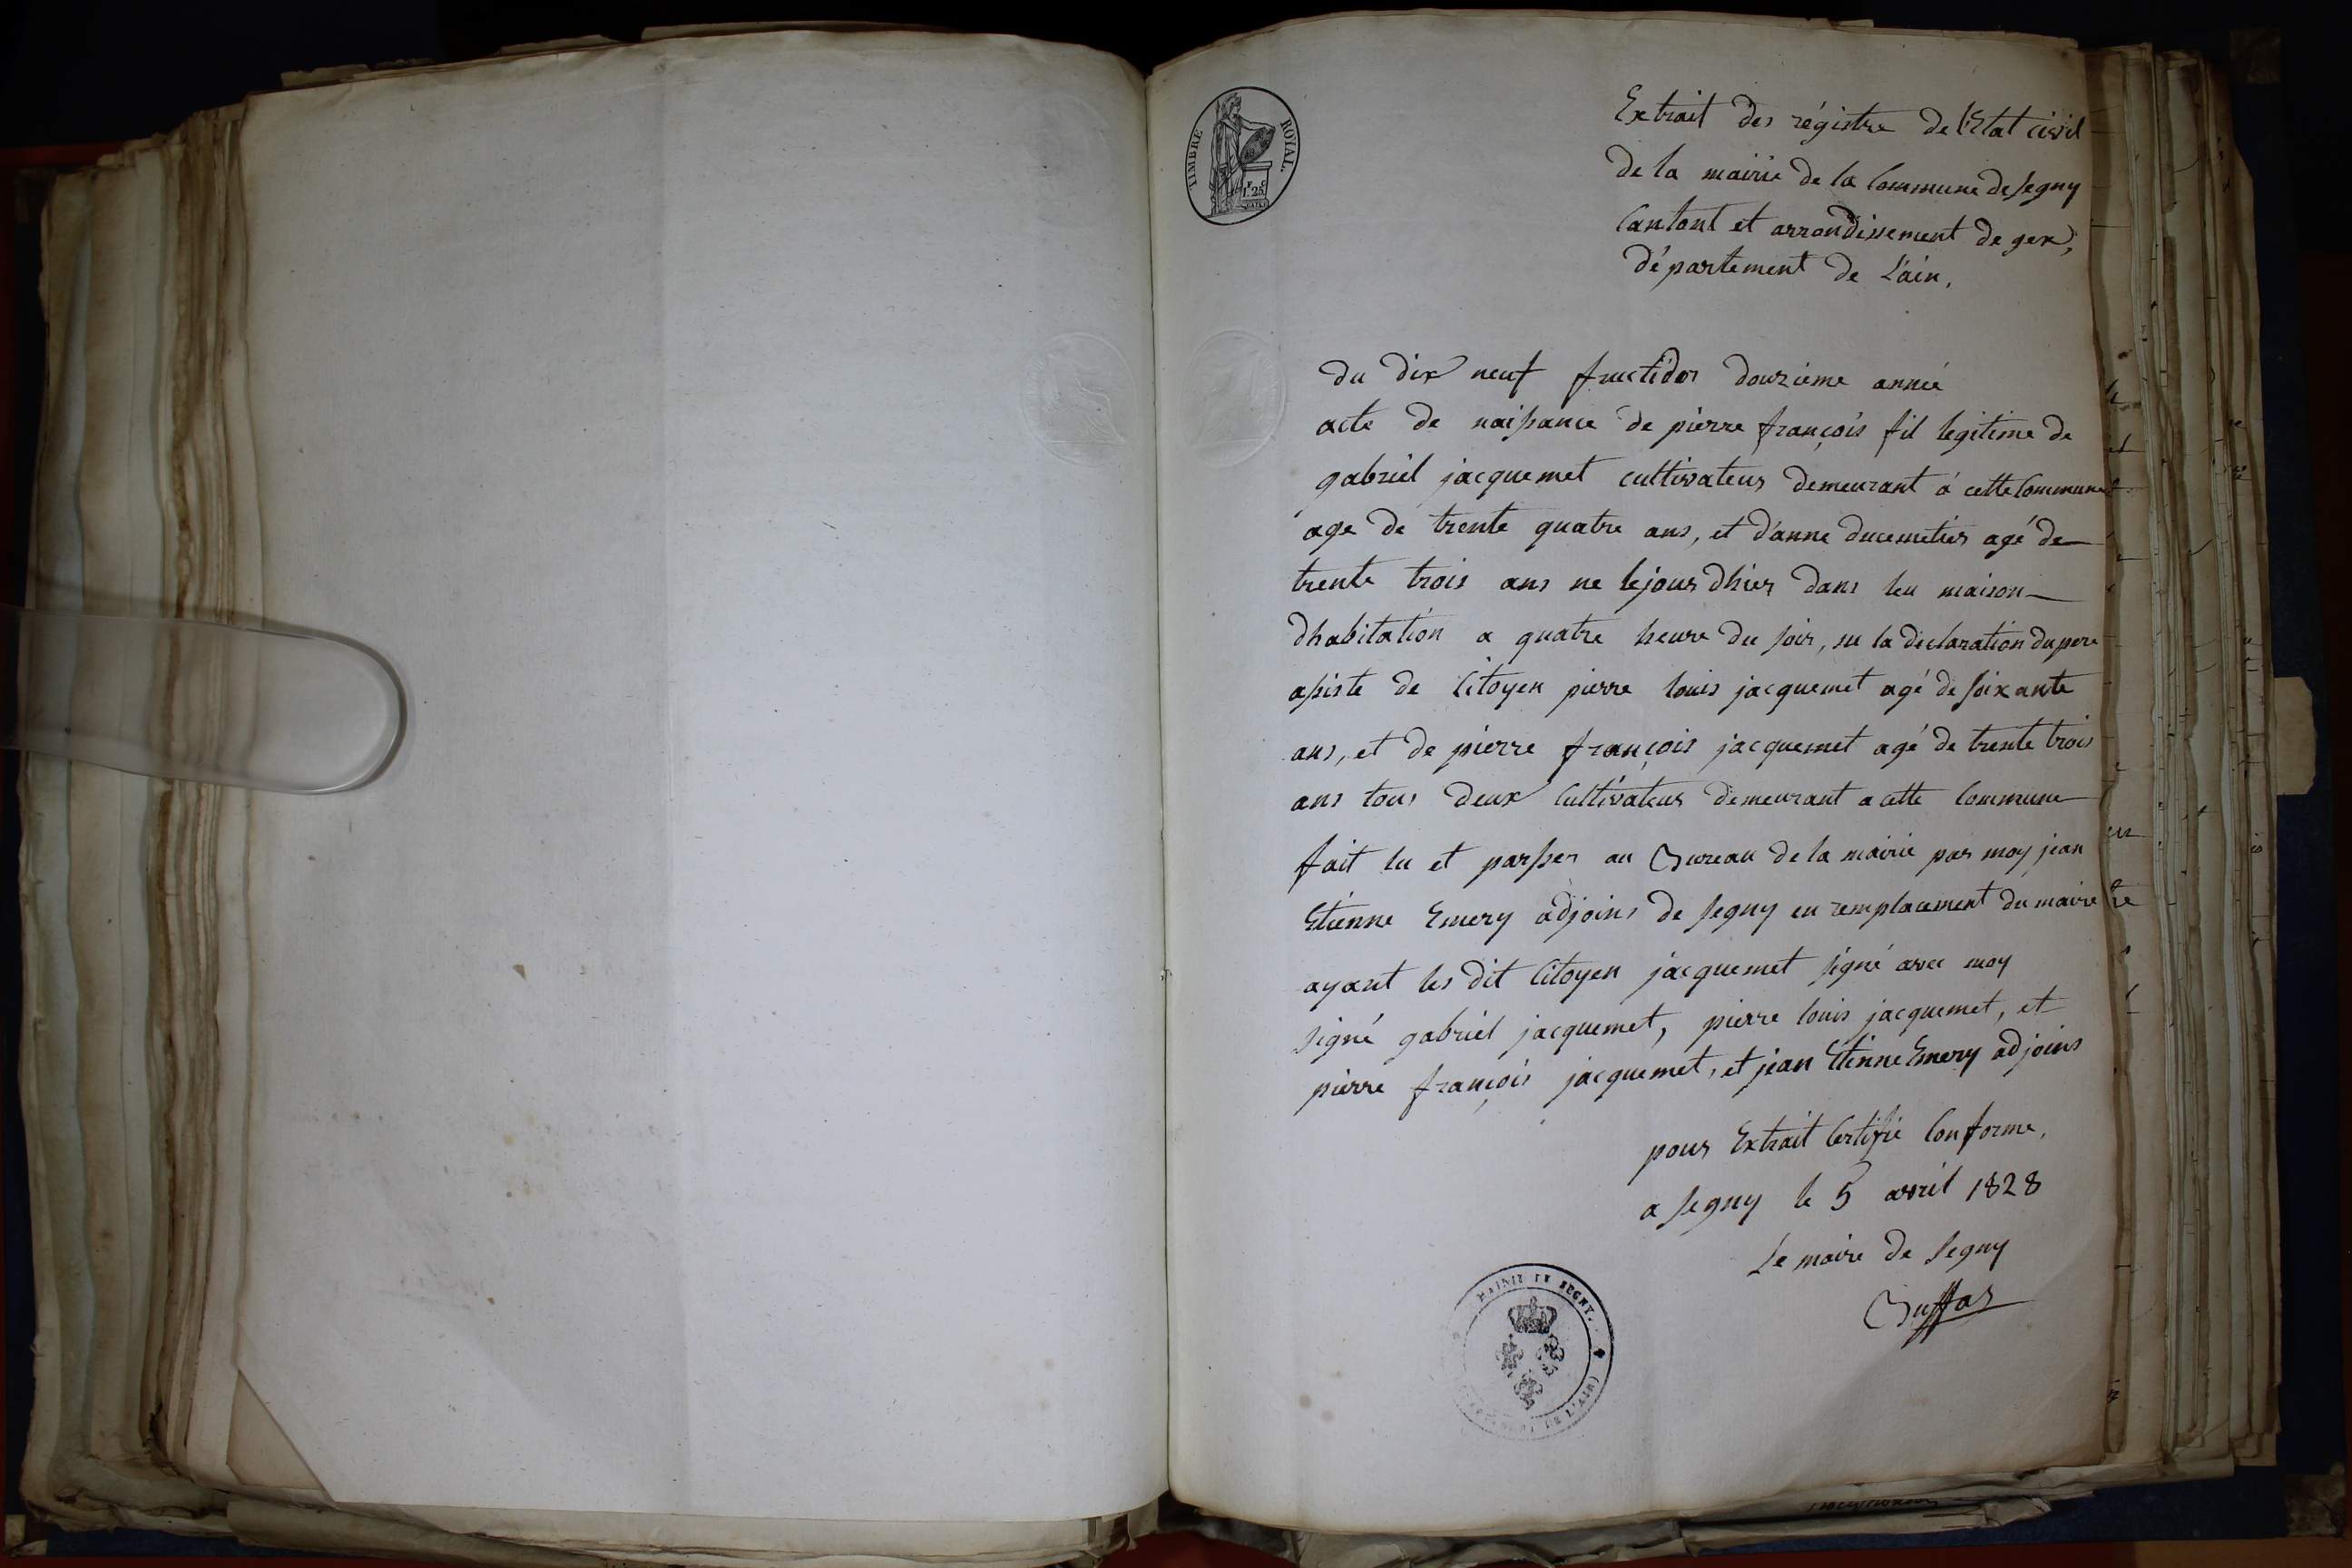 TIMBRE ROYAL.
1F 25C
Extrait des régistre de l'Etat civil
de la mairie de la Commune de Segny
Cantont et arrondissement de gex,
département de L'ain.
du dix neuf fructidor douzieme année
acte de naissance de pierre françois fil legitime de
gabriel jacquemet cultivateur demeurant à cette Commune
age de trente quatre ans, et d'anne ducemetier agé de
trente trois ans ne le jour dhier dans leu maison
dhabitation a quatre heure du soir, su la declaration du pere
assiste de Citoyen pierre louis jacquemet agé de soixante
ans, et de pierre françois jacquemet agé de trente trois
ans tous deux Cultivateur demeurant a cette Commune
fait lu et parsser au Bureau de la mairie par moy jean
Etienne Emery adjoins de Segny en remplacement du maire
ayant les dit Citoyen jacquemet signé avec moy
signé gabriel jacquemet, pierre louis jacquemet, et
pierre françois jacquemet, et jean Etienne Emery adjoins
pour Extrait Certifie Conforme,
a Segny le 5 avril 1828
Le maire de Segny
Buffas
MAIRIE DE SEGNY.
DE L'AIN)